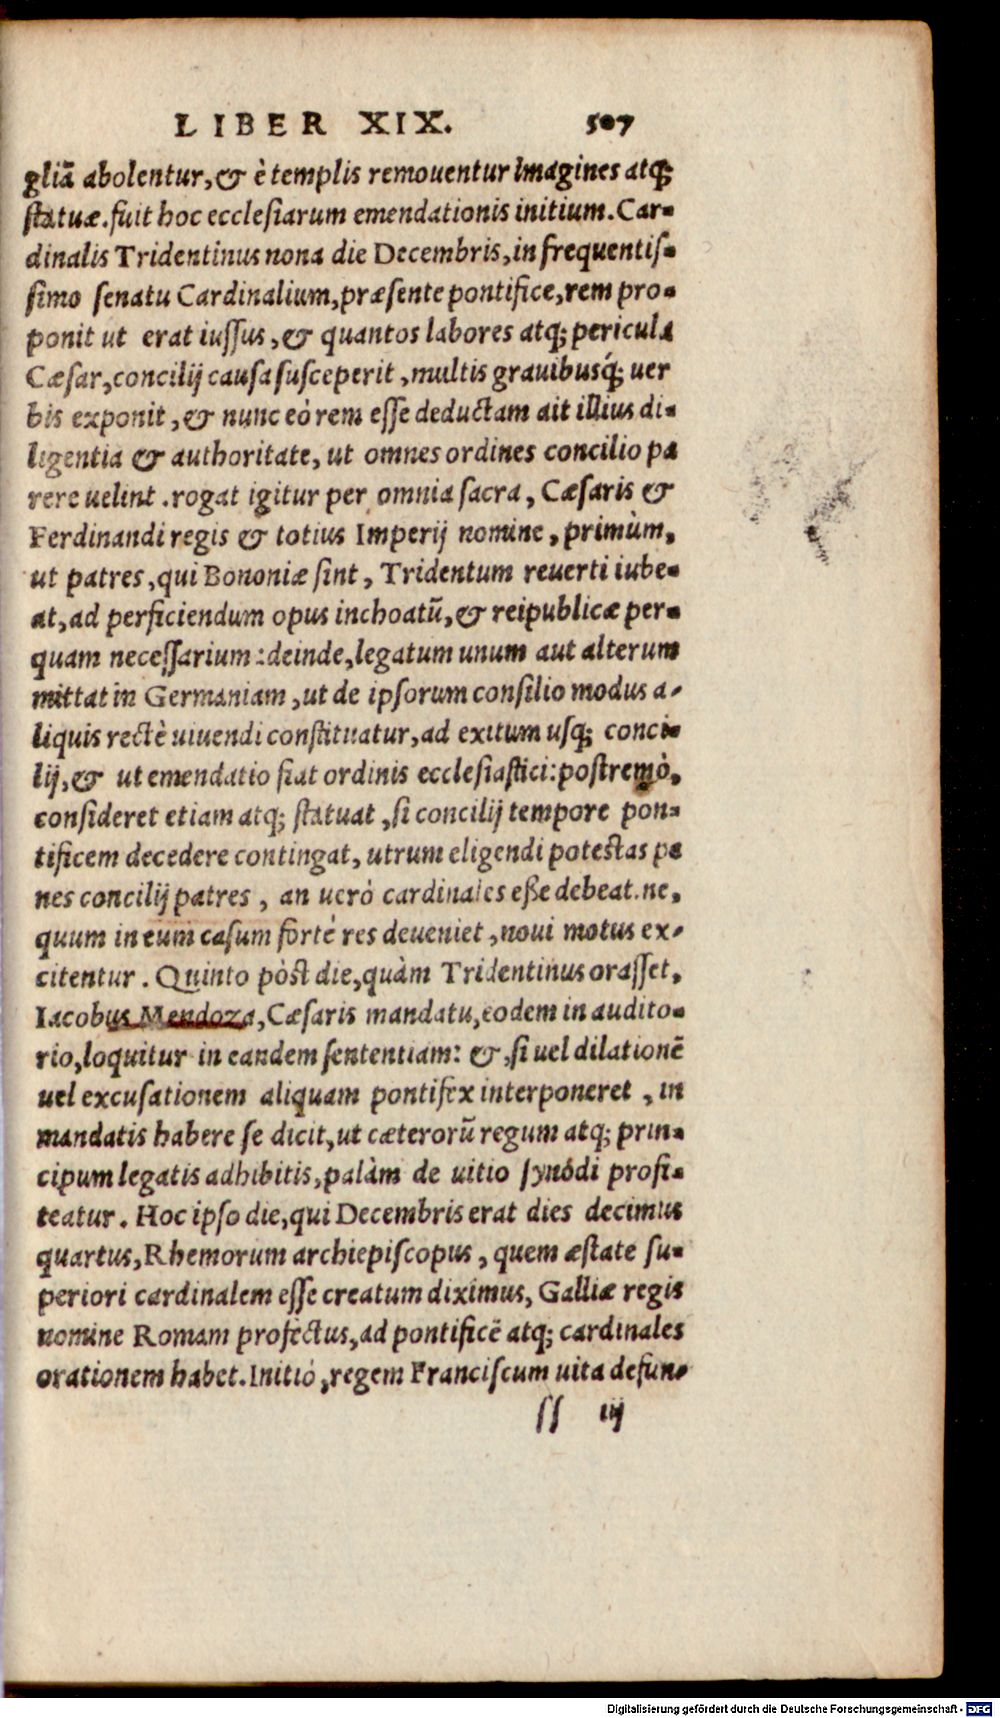 LIBER XIX. 507
gliā abolentur, & è templis remouentur imagines atq;
ſtatuæ. fuit hoc eccleſiarum emendationis initium. Car-
dinalis Tridentinus nona die Decembris, in frequentiſ-
ſimo ſenatu Cardinalium, præſente pontifice, rem pro-
ponit ut erat iuſſus, & quantos labores atq; pericula
Cæſar, concilij cauſa ſuſceperit, multis grauibusq́; uer
bis exponit, & nunc eò rem eſſe deductam ait illius di-
ligentia & authoritate, ut omnes ordines concilio pa
rere uelint. rogat igitur per omnia ſacra, Cæſaris &
Ferdinandi regis & totius Imperij nomine, primùm,
ut patres, qui Bononiæ ſint, Tridentum reuerti iube-
at, ad perficiendum opus inchoatū, & reipublicæ per-
quam neceſſarium: deinde, legatum unum aut alterum
mittat in Germaniam, ut de ipſorum conſilio modus a-
liquis rectè uiuendi conſtituatur, ad exitum uſq; conci-
lij, & ut emendatio fiat ordinis eccleſiaſtici: poſtremò,
conſideret etiam atq; ſtatuat, ſi concilij tempore pon-
tificem decedere contingat, utrum eligendi poteſtas pe
nes concilij patres, an uerò cardinales eße debeat. ne,
quum in eum caſum fortè res deueniet, noui motus ex-
citentur. Quinto pòst die, quàm Tridentinus oraſſet,
Iacobus Mendoza, Cæſaris mandatu, eodem in audito-
rio, loquitur in eandem ſententiam: &, ſi uel dilationē
uel excuſationem aliquam pontifex interponeret, in
mandatis habere ſe dicit, ut cæterorū regum atq; prin-
cipum legatis adhibitis, palàm de uitio ſynódi profi-
teatur. Hoc ipſo die, qui Decembris erat dies decimus
quartus, Rhemorum archiepiſcopus, quem æſtate ſu-
periori cardinalem eſſe creatum diximus, Galliæ regis
nomine Romam profectus, ad pontificē atq; cardinales
orationem habet. Initiò, regem Franciſcum uita defun-
ſſ iij
Digitalisierung gefördert durch die Deutsche Forschungsgemeinschaft - DFG